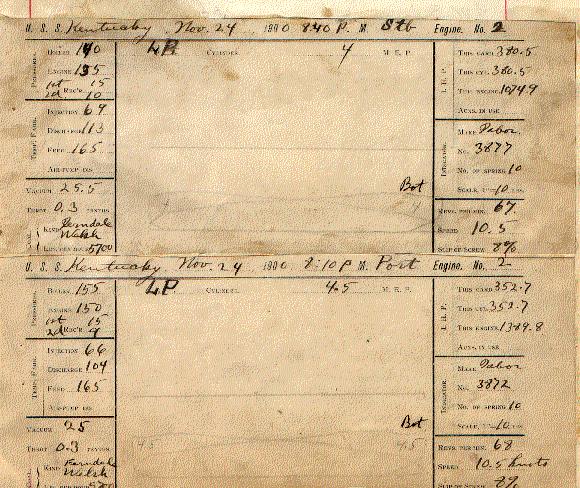 U. S. S. Kentucky Nov. 24 1900 8:40 P. M. Stb Engine. No. 2
BOILER 140
LP CYLINDER. 4 M. E. P.
THIS CARD 380.5
ENGINE 135
THIS CYL. 380.5
1st REC'R. 15
THIS ENGINE 1074.9
2d 10
AUXS. IN USE
INJECTION 67
DISCHARGE 113
MAKE Tabor
FEED 165
No. 3877
AIR-PUMP DIS.
NO. OF SPRING 10
VACUUM 25.5
Bot
SCALE, 1"=10 LBS.
THROT. 0.3 TENTHS
REVS. PER MIN. 67.
KIND Ferndale
SPEED 10.5
Welsh
SLIP OF SCREW 8%
5700
U. S. S. Kentucky Nov. 24 1900 8:10 P. M. Port Engine. No. 2
BOILER 155
LP CYLINDER. 4.5 M. E. P.
THIS CARD 352.7
ENGINE 150
THIS CYL. 352.7
1st REC'R. 15
THIS ENGINE 1389.8
2d 9
AUXS. IN USE
INJECTION 66
DISCHARGE 104
MAKE Tabor
FEED 165
No. 3872
AIR-PUMP DIS.
NO. OF SPRING 10
VACUUM 25
Bot
SCALE, 1"=10 LBS.
THROT. 0.3 TENTHS
4.5 4.5
REVS. PER MIN. 68
KIND Ferndale
SPEED 10.5 knots
Welsh
SLIP OF SCREW 8%